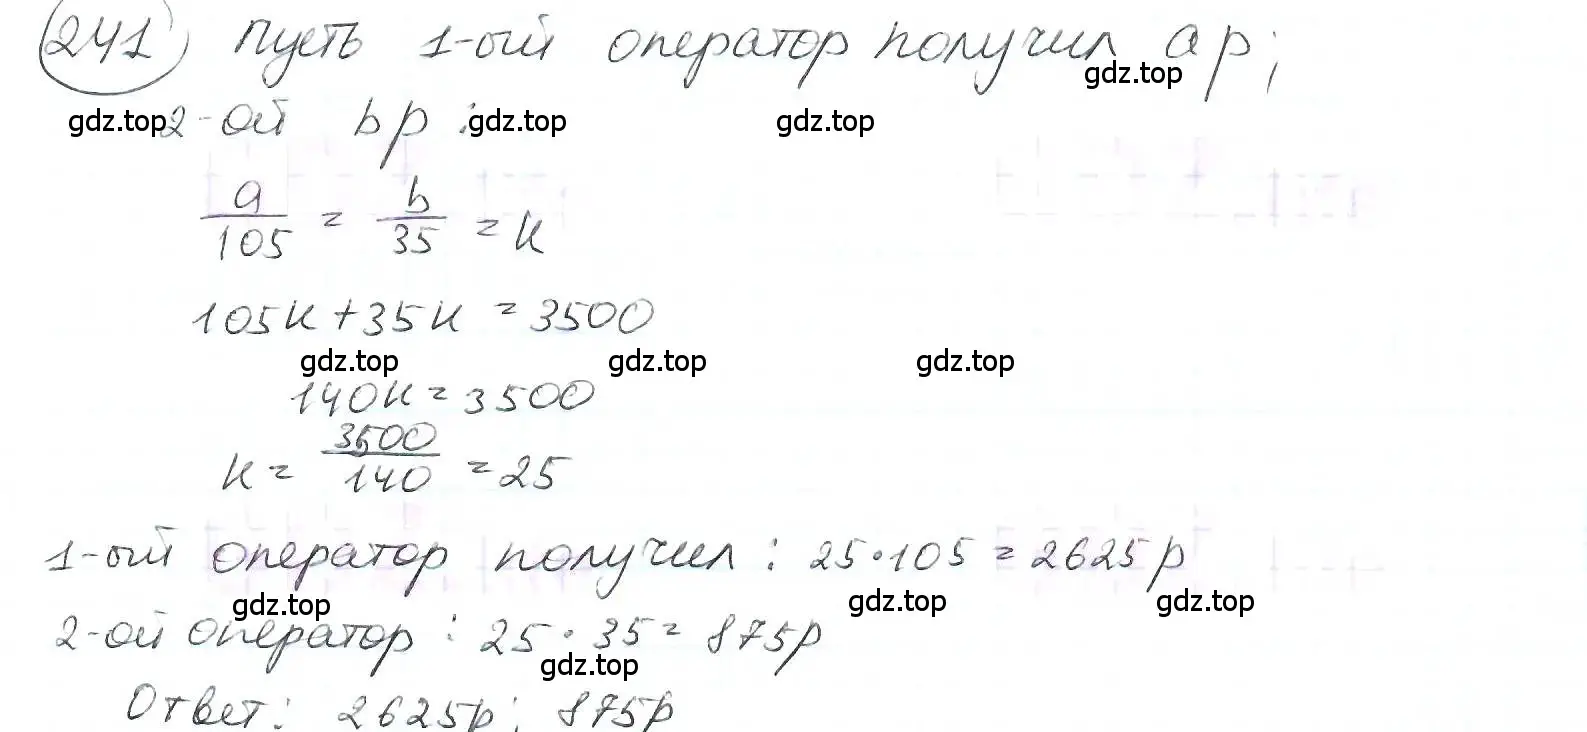 241) Пусть 1-ый оператор получил a р;
gdz.top
2-ой b р;
gdz.top gdz.top gdz.top
a/105 = b/35 = к
105к+35к = 3500
gdz.top gdz.top gdz.top
140к = 3500
к = 3500/140 = 25
1-ый оператор получил: 25·105 = 2625р
gdz.top gdz.top gdz.top
2-ой оператор: 25·35 = 875р
gdz.top
Ответ: 2625р; 875р